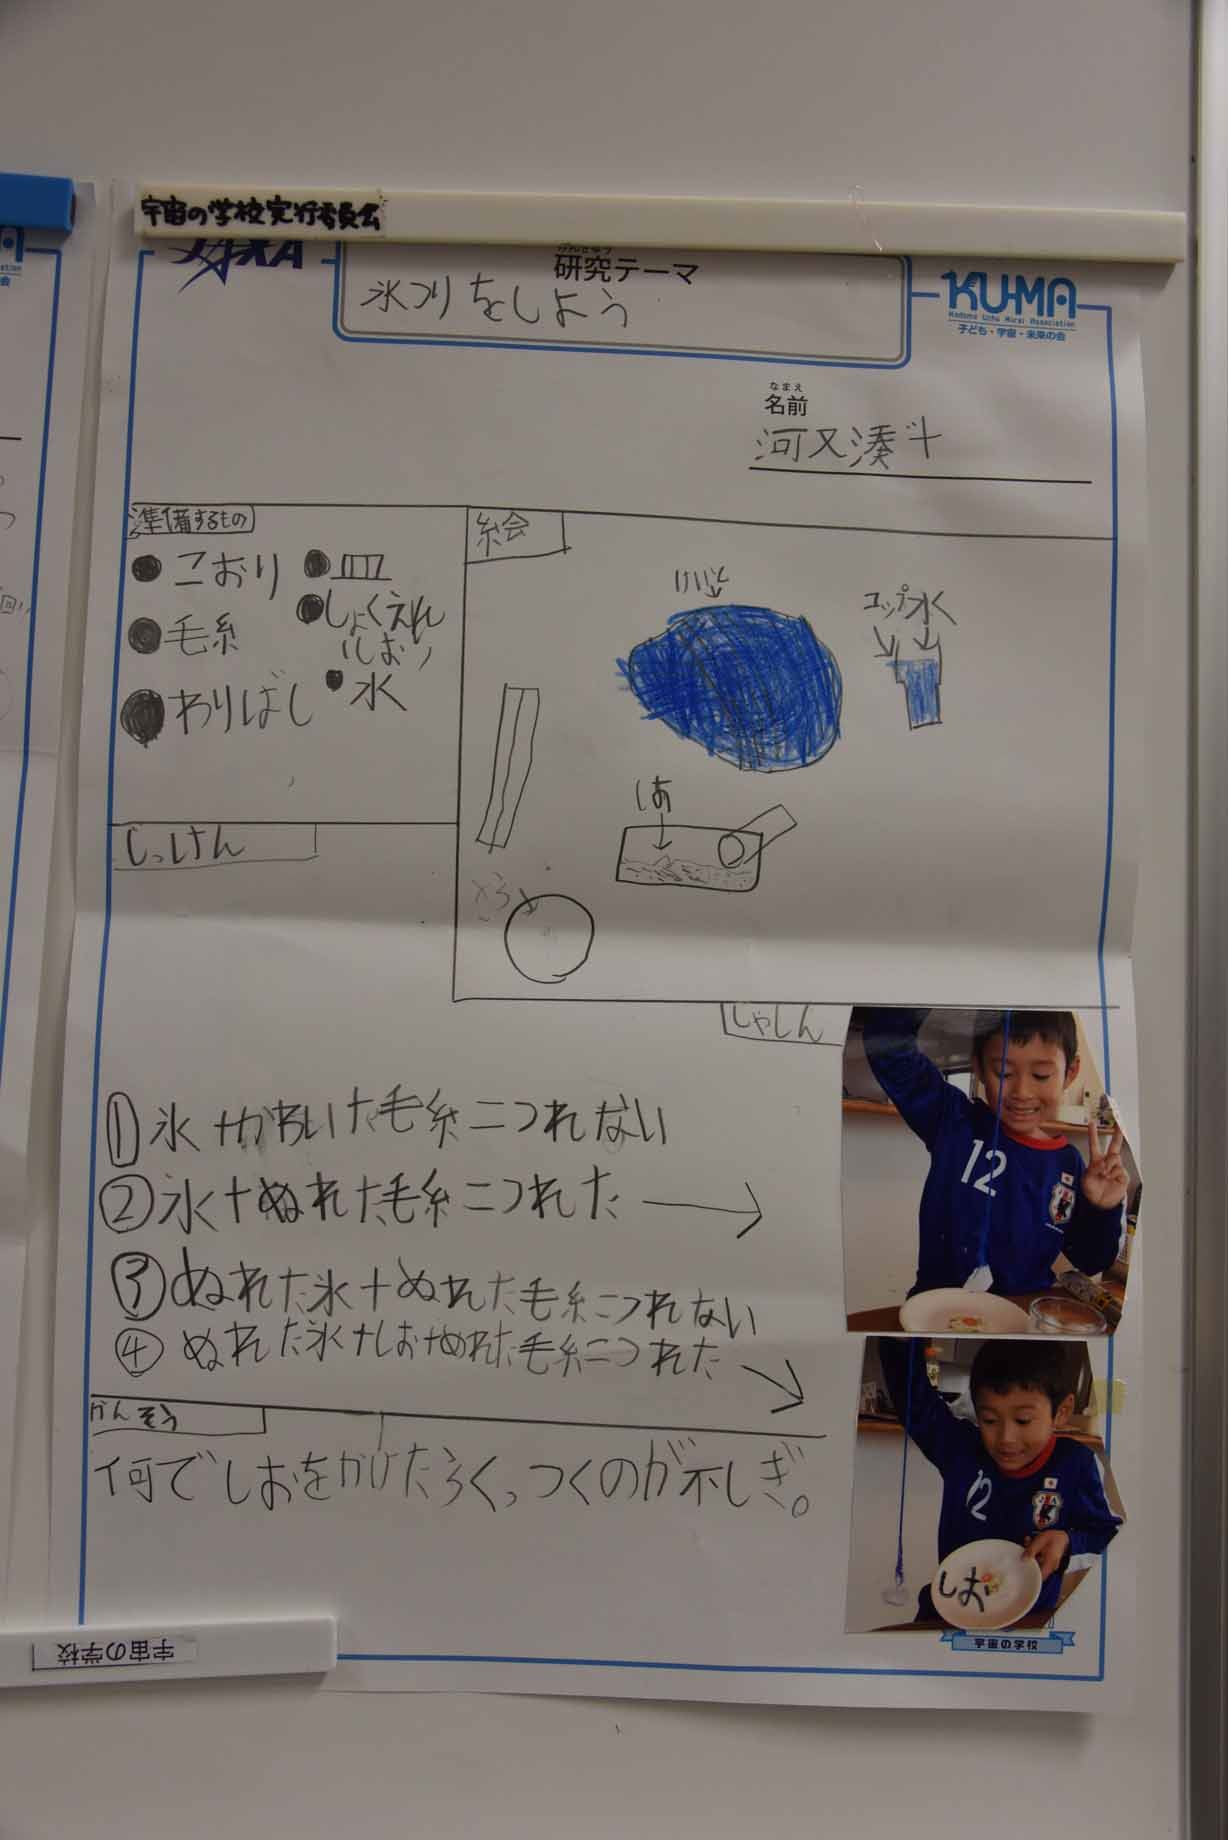 宇宙の学校実行委員会
けんきゅう
研究テーマ
氷つりをしよう
KU-MA
Kodomo Uchu Mirai Association
子ども・宇宙・未来の会
なまえ
名前
河又湊斗
準備するもの
こおり
毛糸
わりばし
皿
しょくえん
(しお)
水
絵会
けいと
コップ 水
しお
さら
じっけん
しゃしん
① 氷+かわいた毛糸=つれない
② 氷+ぬれた毛糸=つれた →
③ ぬれた氷+ぬれた毛糸=つれない
④ ぬれた氷+しお+ぬれた毛糸=つれた
12
12
しお
かんそう
何でしおをかけたらくっつくのが不しぎ。
宇宙の学校
宇宙の学校